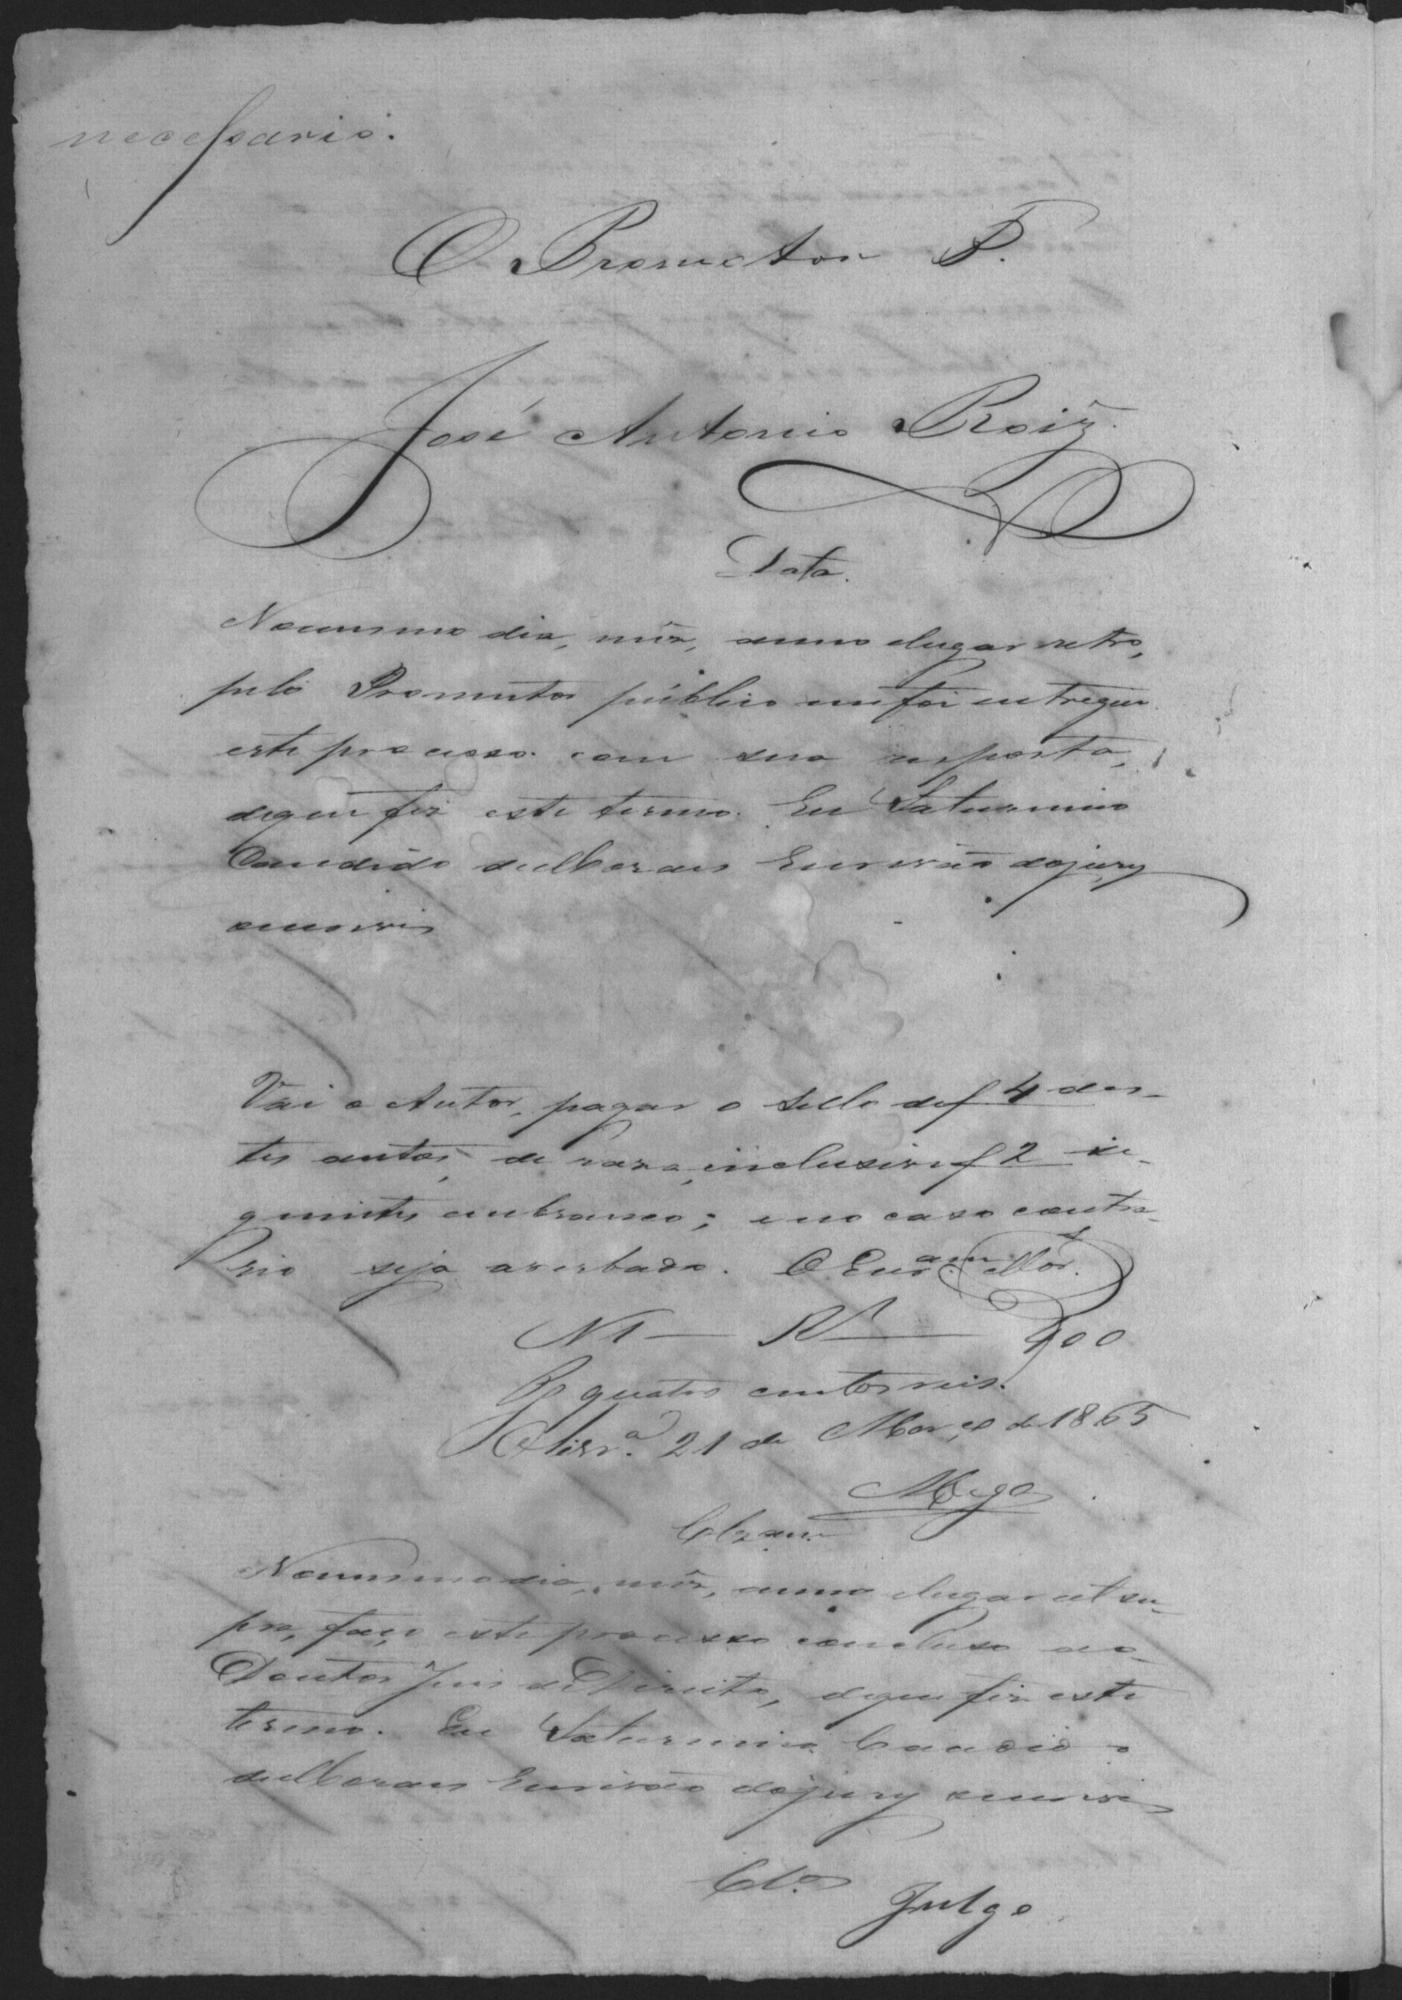 necessario.
O Promotor P.
José Antonio Roiz
Data.
No mesmo dia, mês, anno elugar retro,
pelo Promotor público me foi entregue
este processo com sua resposta,
de que fiz este termo. Eu Saturnino
Candido Escrivão do jury
escrevi
Vai o Autor, pagar o Sello de f 4 des-
tes autos, de inclusive f 2 se-
guintes em branco; e no caso contra-
rio seja averbado. O
N 1 — Rs — 400
Pg quatro centos reis.
21 de Março de 1865
Clzam
No mesmo dia, mês, anno elugar ut su-
pra, faço este processo concluso ao
Doutor Juis de Direito, de que fiz este
termo. Eu Saturnino Candido
Escrivão do jury escrevi
Clos
Julgo